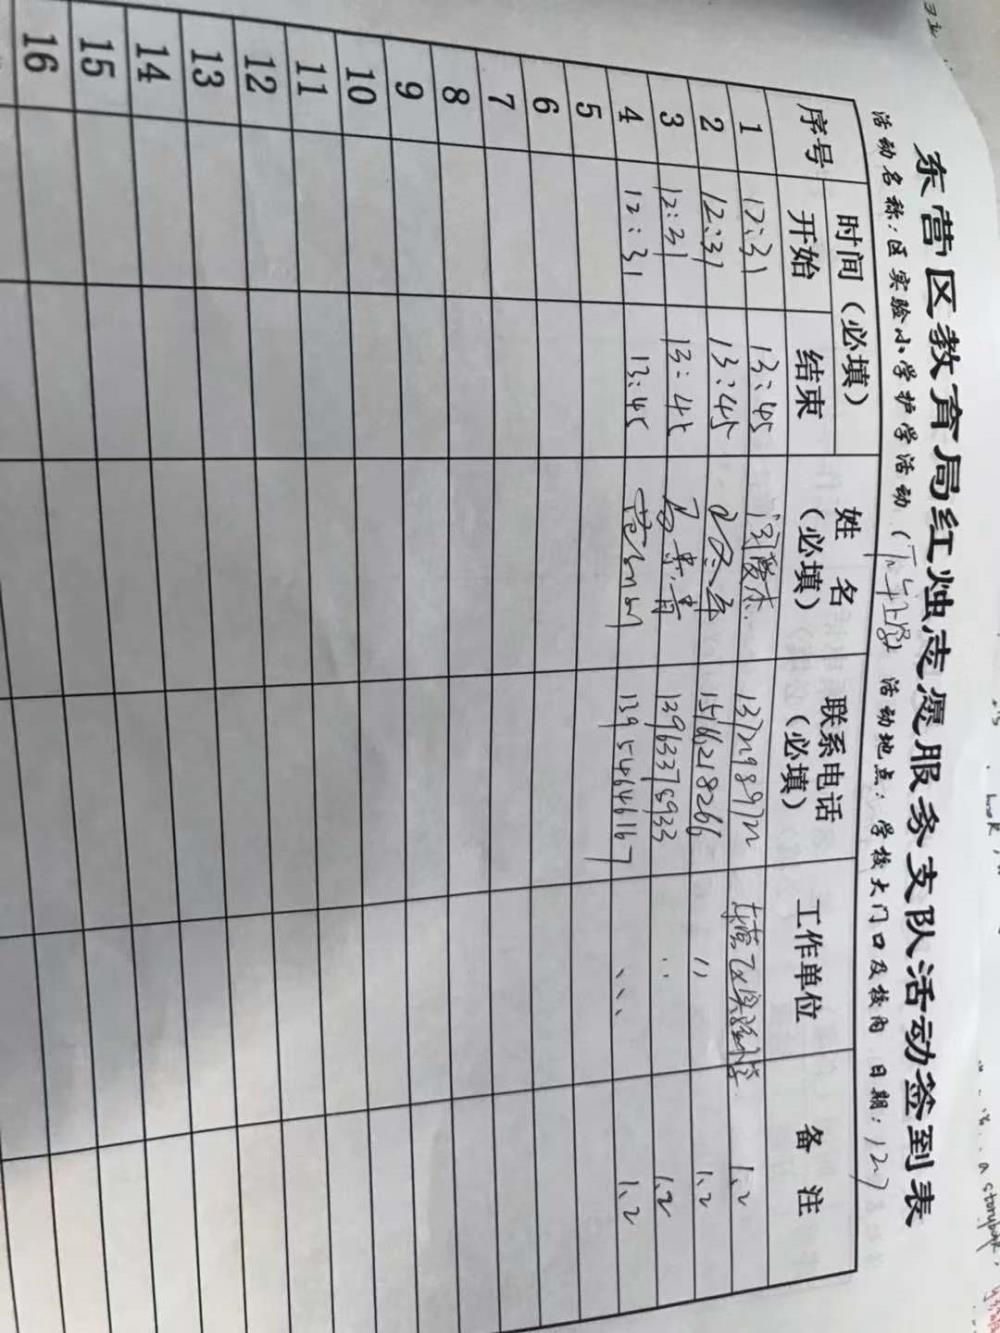 东营区教育局红烛志愿服务支队活动签到表
活动名称：区实验小学护学活动（下午上学） 活动地点：学校大门口及校内 日期：12.7
序号 时间（必填） 姓名（必填） 联系电话（必填） 工作单位 备注
开始 结束
1 12:31 13:45 13729989722 东营区实验小学 1.2
2 12:31 13:45 15166218266 〃 1.2
3 12:31 13:45 13963375933 〃 1.2
4 12:31 13:45 13954646167 1.2
5
6
7
8
9
10
11
12
13
14
15
16